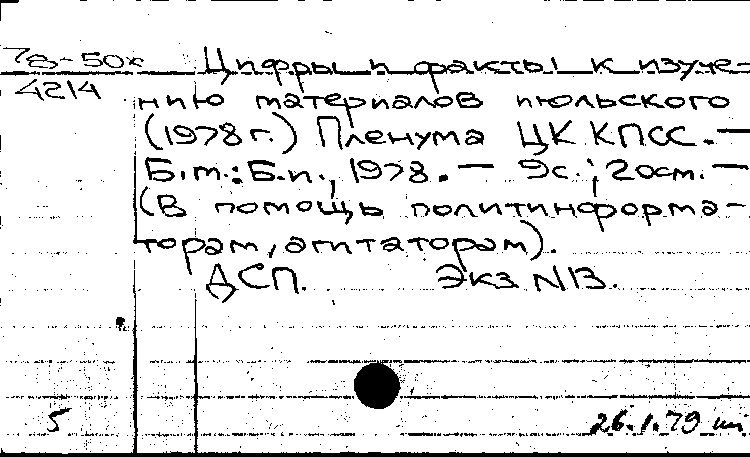 78-50к Цифры и факты к изуче-
4214 нию материалов июльского
(1978 г.) Пленума ЦК КПСС.—
Б.м.: Б.и., 1978. — 9с.; 20см.—
(В помощь политинформа-
торам, агитаторам).
ДСП. Экз N13.
5 26.1.79